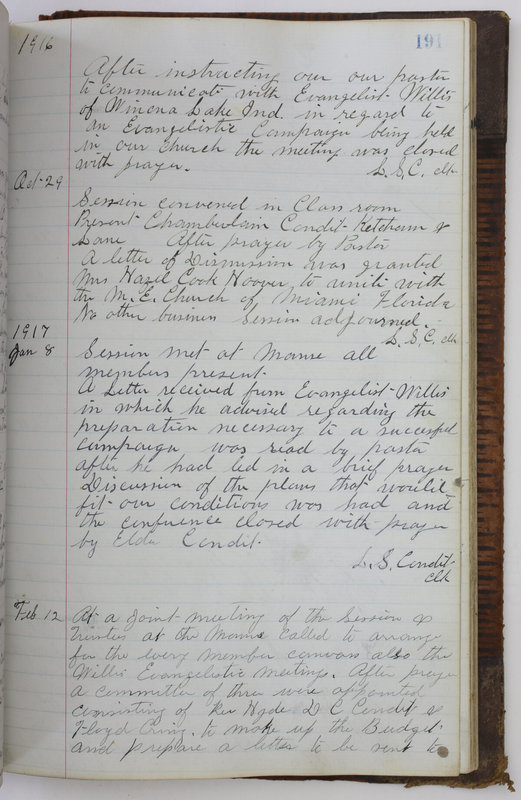 1916
191
After instructing our our pastor
to communicate with Evangelist Willis
of Winona Lake Ind. in regard to
an Evangelistic Campaign being held
in our church the meeting was closed
with prayer. L. S. C. clk
Oct 29
Session convened in Class room
Present Chamberlain Condit Ketcham &
Lane After prayer by Pastor
A letter of Dismission was granted
Mrs Hazel Cook Hoover to unite with
the M. E. Church of Miami Florida
No other business Session adjourned.
L. S. C. clk
1917
Jan 8
Session met at Manse all
members present
A Letter received from Evangelist Willis
in which he advised regarding the
preparation necessary to a successful
campaign was read by pastor
after he had led in a brief prayer
Discussion of the plans that would
fit our conditions was had and
the conference closed with prayer
by Elder Condit.
L. S. Condit
clk
Feb 12
At a joint meeting of the Session &
Trustees at the Manse called to arrange
for the every member canvass also the
Willis Evangelistic meetings. After prayer
a committee of three were appointed
consisting of Rev Hyde D C Condit &
Floyd Cring. to make up the Budget
and prepare a letter to be sent to